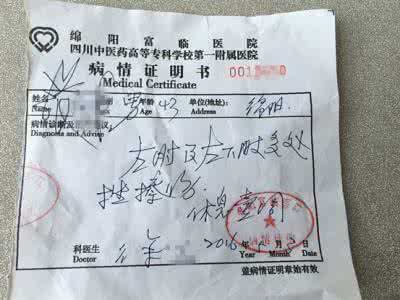 绵阳富临医院
四川中医药高等专科学校第一附属医院
病情证明书
Medical Certificate
姓名 年龄 43 单位(地址): 绵阳
Age Address
病情诊断及
Diagnosis and Advise
左肘及左下肢多处
挫擦伤. 休息壹周
科医生 2016
Doctor Year Month Day
盖病情证明章始有效